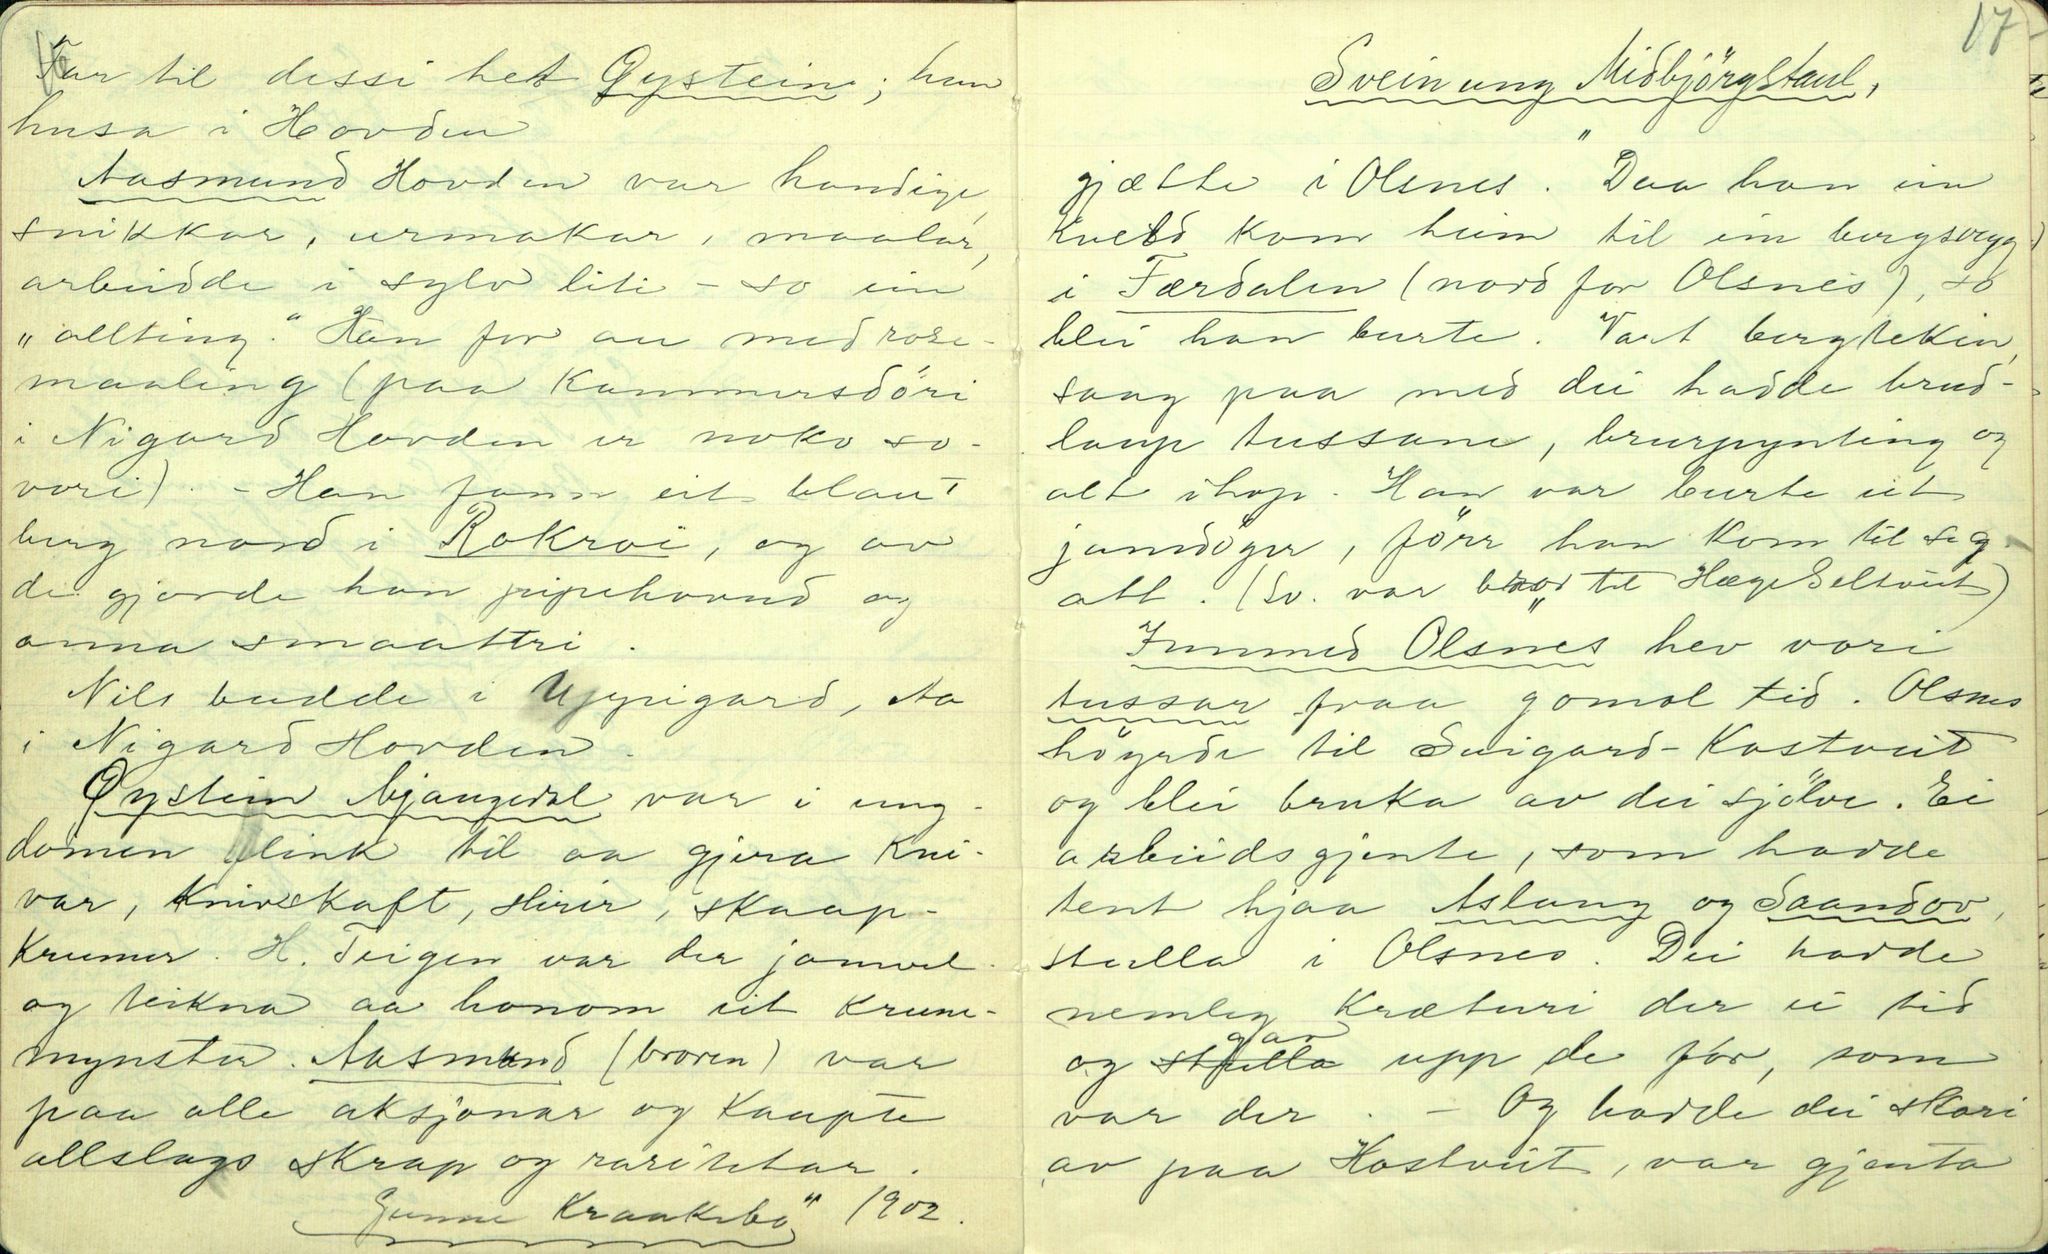 Far til dessi het Øystein; han
husa i Hovden
Aasmund Hovden var handige,
snikkar, urmakar, maalar,
arbeidde i sylv liti - so ein
"allting." Han for au med rose-
maaling (paa Kammersdöri
i Nigard Hovden er noko so-
vori). - Han fann eit blaut
berg nord i Rokroi, og av
di gjorde han pipehovud og
anna smaattri.
Nils budde i Uppigard, Aa
i Nigard Hovden.
Øystein Mjaugedal var i ung-
domen flink til aa gjera Kni-
var, Knivskaft, slirir, skaap-
Krumer. H. Teigen var der jamvel
og teikna aa honom eit Krune-
mynster. Aasmund (broren) var
paa alle aksjonar og Kaupte
allslags skrap og raritetar.
Gunne Kraakebö 1902.
17
Sveinung Midbjörgstaul,
gjætte i Olsnes. "Daa han ein
Kveld Kom heim til ein bergsvegg
i Færdalen (nord for Olsnes), so
blei han burte. Vart bergtekin,
saag paa med dei hadde brud-
laup tussane, brurpynting og
alt ihop. Han var burte eit
jamdöger, förr han Kom til seg
att. (Sv. var bror til Hæge Seltveit)
Innmed Olsnes hev vori
tussar fraa gomol tid. Olsnes
höyrde til Suigard-Kostveit
og blei bruka av dei sjölve. Ei
arbeidsgjente, som hadde
tent hjaa Aslaug og Saandov,
stulla i Olsnes. Dei hadde
nemleg Kræturi der ei tid
og stulla gav upp de fór, som
var der. - Og hadde dei skori
av paa Kostveit, var gjenta